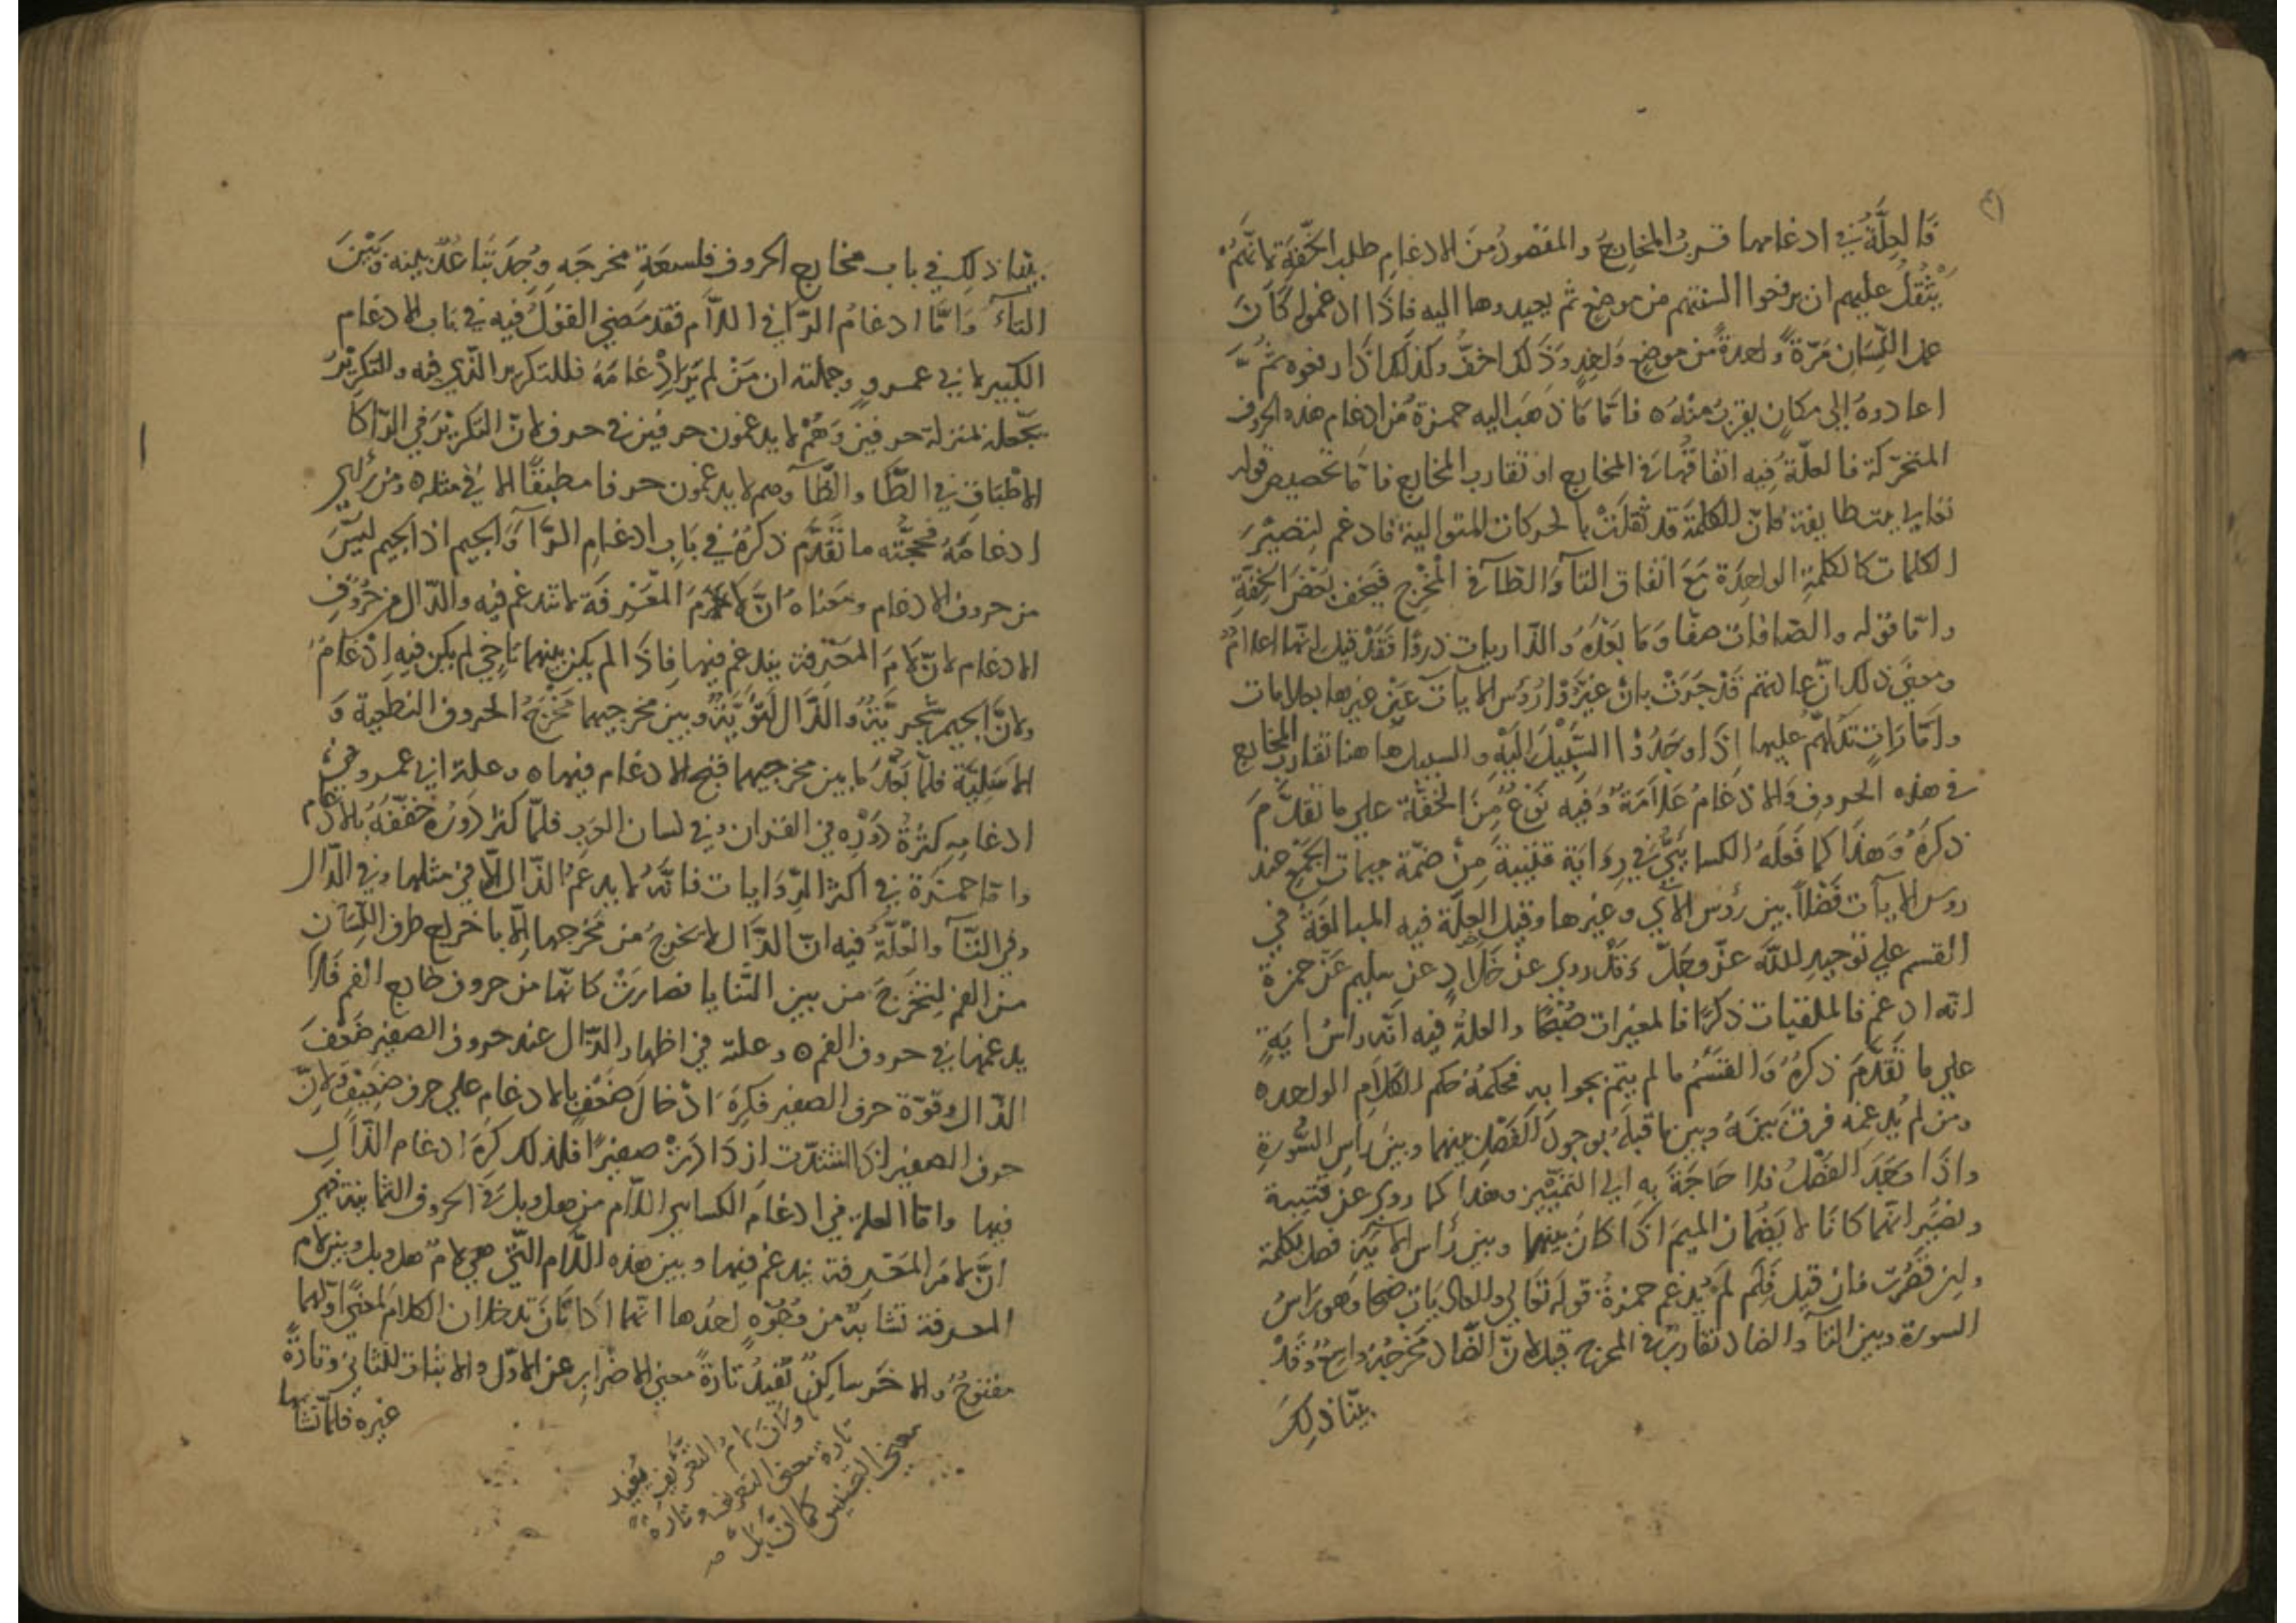 فالعلّة في ادغامها قرب المخارج والمقصود من الادغام طلب الخفّة لانّهم
يثقل عليهم ان يرفعوا السنتهم من موضع ثم يعيدوها اليه فاذا ادغموا كان
عمل اللّسان مرّة واحدة من موضع واحد وذلك اخفّ وكذلك اذا رفعوه ثمّ
اعادوه الى مكان يقرب منه ٥ فامّا ما ذهب اليه حمزة من ادغام هذه الحروف
المتحرّكة فالعلّة فيه اتفاقهما في المخارج او تقارب المخارج فامّا تخصيص قوله
تعالى بيت طايفة فلانّ الكلمة قد ثقلت بالحركات المتوالية فادغم لتصير
الكلمات كالكلمة الواحدة مع اتفاق التآ والطآ في المخرج فيخف بعض الخفّة
وامّا قوله والصّافات صفّا وما بعده والذّاريات ذروًا فقد قيل انّها اعلام
ومعنى ذلك انّ عادتهم قد جرت بان غيّروا رؤس الآيات عن غيرها بعلامات
وامارات تدلّهم عليها اذا وجدوا السّبيل اليه والسبيل هاهنا تقارب المخارج
في هذه الحروف والادغام علامة وفيه نوع من الخفّة على ما تقدّم
ذكره وهذا كما فعله الكسائيّ في رواية قتيبة من ضمّة ميمات الجمع عند
روس الآيات فصلاً بين رؤس الآي وغيرها وقيل العلّة فيه المبالغة في
القسم على توحيد اللّه عزّ وجلّ وقد روى عن خلّاد عن سليم عن حمزة
انّه ادغم فالملقيات ذكرًا فالمغيرات صبحًا والعلة فيه انّه راس اية
على ما تقدّم ذكره والقسم ما لم يتم بجوابه فحكمه حكم الكلام الواحد ٥
ومن لم يدغمه فرق بينه وبين ما قبله بوجود الفصل بينهما وبين راس السّورة
واذا وجد الفصل فلا حاجة به الى التمييز وهذا كما روى عن قتيبة
ونصير انّهما كانا لا يضمان الميم اذا كان بينهما وبين رأس الآية فصل بكلمة
ولين قصرت فان قيل فلم لم يدغم حمزة قوله تعالى والعاديات ضبحا وهو راس
السورة وبين التآ والضاد تقارب في المخرج قيل لانّ الضّاد مخرجه واسع وقد
بيّنا ذلك
بيّنا ذلك في باب مخارج الحروف فلسعة مخرجه وجد تباعد بينه وبين
التآء وامّا ادغام الرّآ في اللّام فقد مضى القول فيه في باب الادغام
الكبير لابي عمرو وجملته ان من لم ير ادغامه فللتكرير الذّي فيه والتكرير
يجعله بمنزلة حرفين وهم لا يدغمون حرفين في حرف لانّ التكرير في الرّا كا
لاطباق في الطّآ والظّآ وهم لا يدغمون حرفا مطبقًا الا في مثله ٥ ومن رأى
ادغامه فحجّته ما تقدّم ذكره في باب ادغام الرّآ والجيم اذ الجيم ليس
من حروف الادغام ومعناه انّ لام المعرفة لا تندغم فيه والدّال من حروف
الادغام لانّ لام المعرفة يندغم فيها فاذا لم يكن بينهما تاخي لم يكن فيه ادغام
ولانّ الجيم شجريّة والذّال لثويّة وبين مخرجيهما مخرج الحروف النطعية و
الاسليّة فلمّا بعد ما بين مخرجيهما قبح الادغام فيها ٥ وعلة ابي عمرو في
ادغامه كثرة دوره في القران وفي لسان العرب فلمّا كثر دوره خفّفه بالادغام
وامّا حمزة في اكثر الرّوايات فانّه لا يدغم الذّال الّا في مثلها وفي الدّال
وفي التّآ والعلّة فيه انّ الذّال لا تخرج من مخرجها الّا باخراج طرف اللّسان
من الفم لتخرج من بين الثّنايا فصارت كانّها من حروف خارج الفم فلا
يدغمها في حروف الفم ٥ وعلته في اظهار الذّال عند حروف الصفير ضعف
الذّال وقوّة حرف الصفير فكره ادخال ضعف بالادغام على حرف ضعيف ولانّ
حروف الصفير اذا اشتدّت ازدادت صفيرًا فلذلك كره ادغام الذّال
فيها وامّا العلة في ادغام الكسايي اللّام من هل وبل في الحروف الثمانية فهي
انّ لام المعرفة يندغم فيها وبين هذه اللّام التّي هي لام هل وبل وبين لام
المعرفة تشابه من وجوه احدها انّهما اداتان تدخلان الكلام لمعنًى اوّلهما
مفتوح والاخر ساكن تفيد تارة معنى الاضراب عن الاوّل والاثبات للثاني وتارة
غيره فلمّا تشابها
ولانّ لام التعريف يفيد
تارة معنى التعريف وتارة
معنى التجنيس كما انّ بل